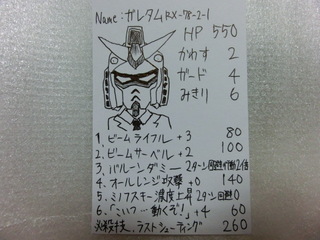 Name:ガレタムRX-78-2-1
HP 550
かわす 2
ガード 4
みきり 6
1、ビームライフル +3 80
2、ビームサーベル +2 100
3、バルーンダミー 2ターン回避行動2倍
4、オールレンジ攻撃 +0 140
5、ミノフスキー濃度上昇 2ターン回避 0
6、「こいつ…動くぞ!」+4 60
必殺技、ラストシューティング 260